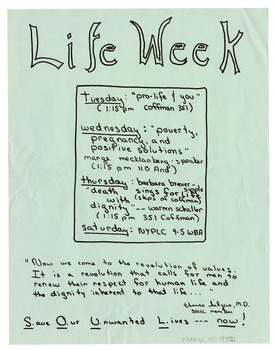 Life Week
Tuesday: "pro-life & you"
(1:15 pm Coffman 351)
wednesday: "poverty,
pregnancy, and
positive solutions"
marge mecklanberg - speaker
(1:15 pm 110 And)
thursday: barbara brever -
"death sings for life
with (steps of coffman)
dignity" -- warren schaller
(1:15 pm 351 Coffman)
saturday: NYPLC 9-5 WBA
"Now we come to the revolution of values.
It is a revolution that calls for men to
renew their respect for human life and
the dignity inherent to that life...
thomas M.D.
SOUL member
Save Our Unwanted Lives --- now!